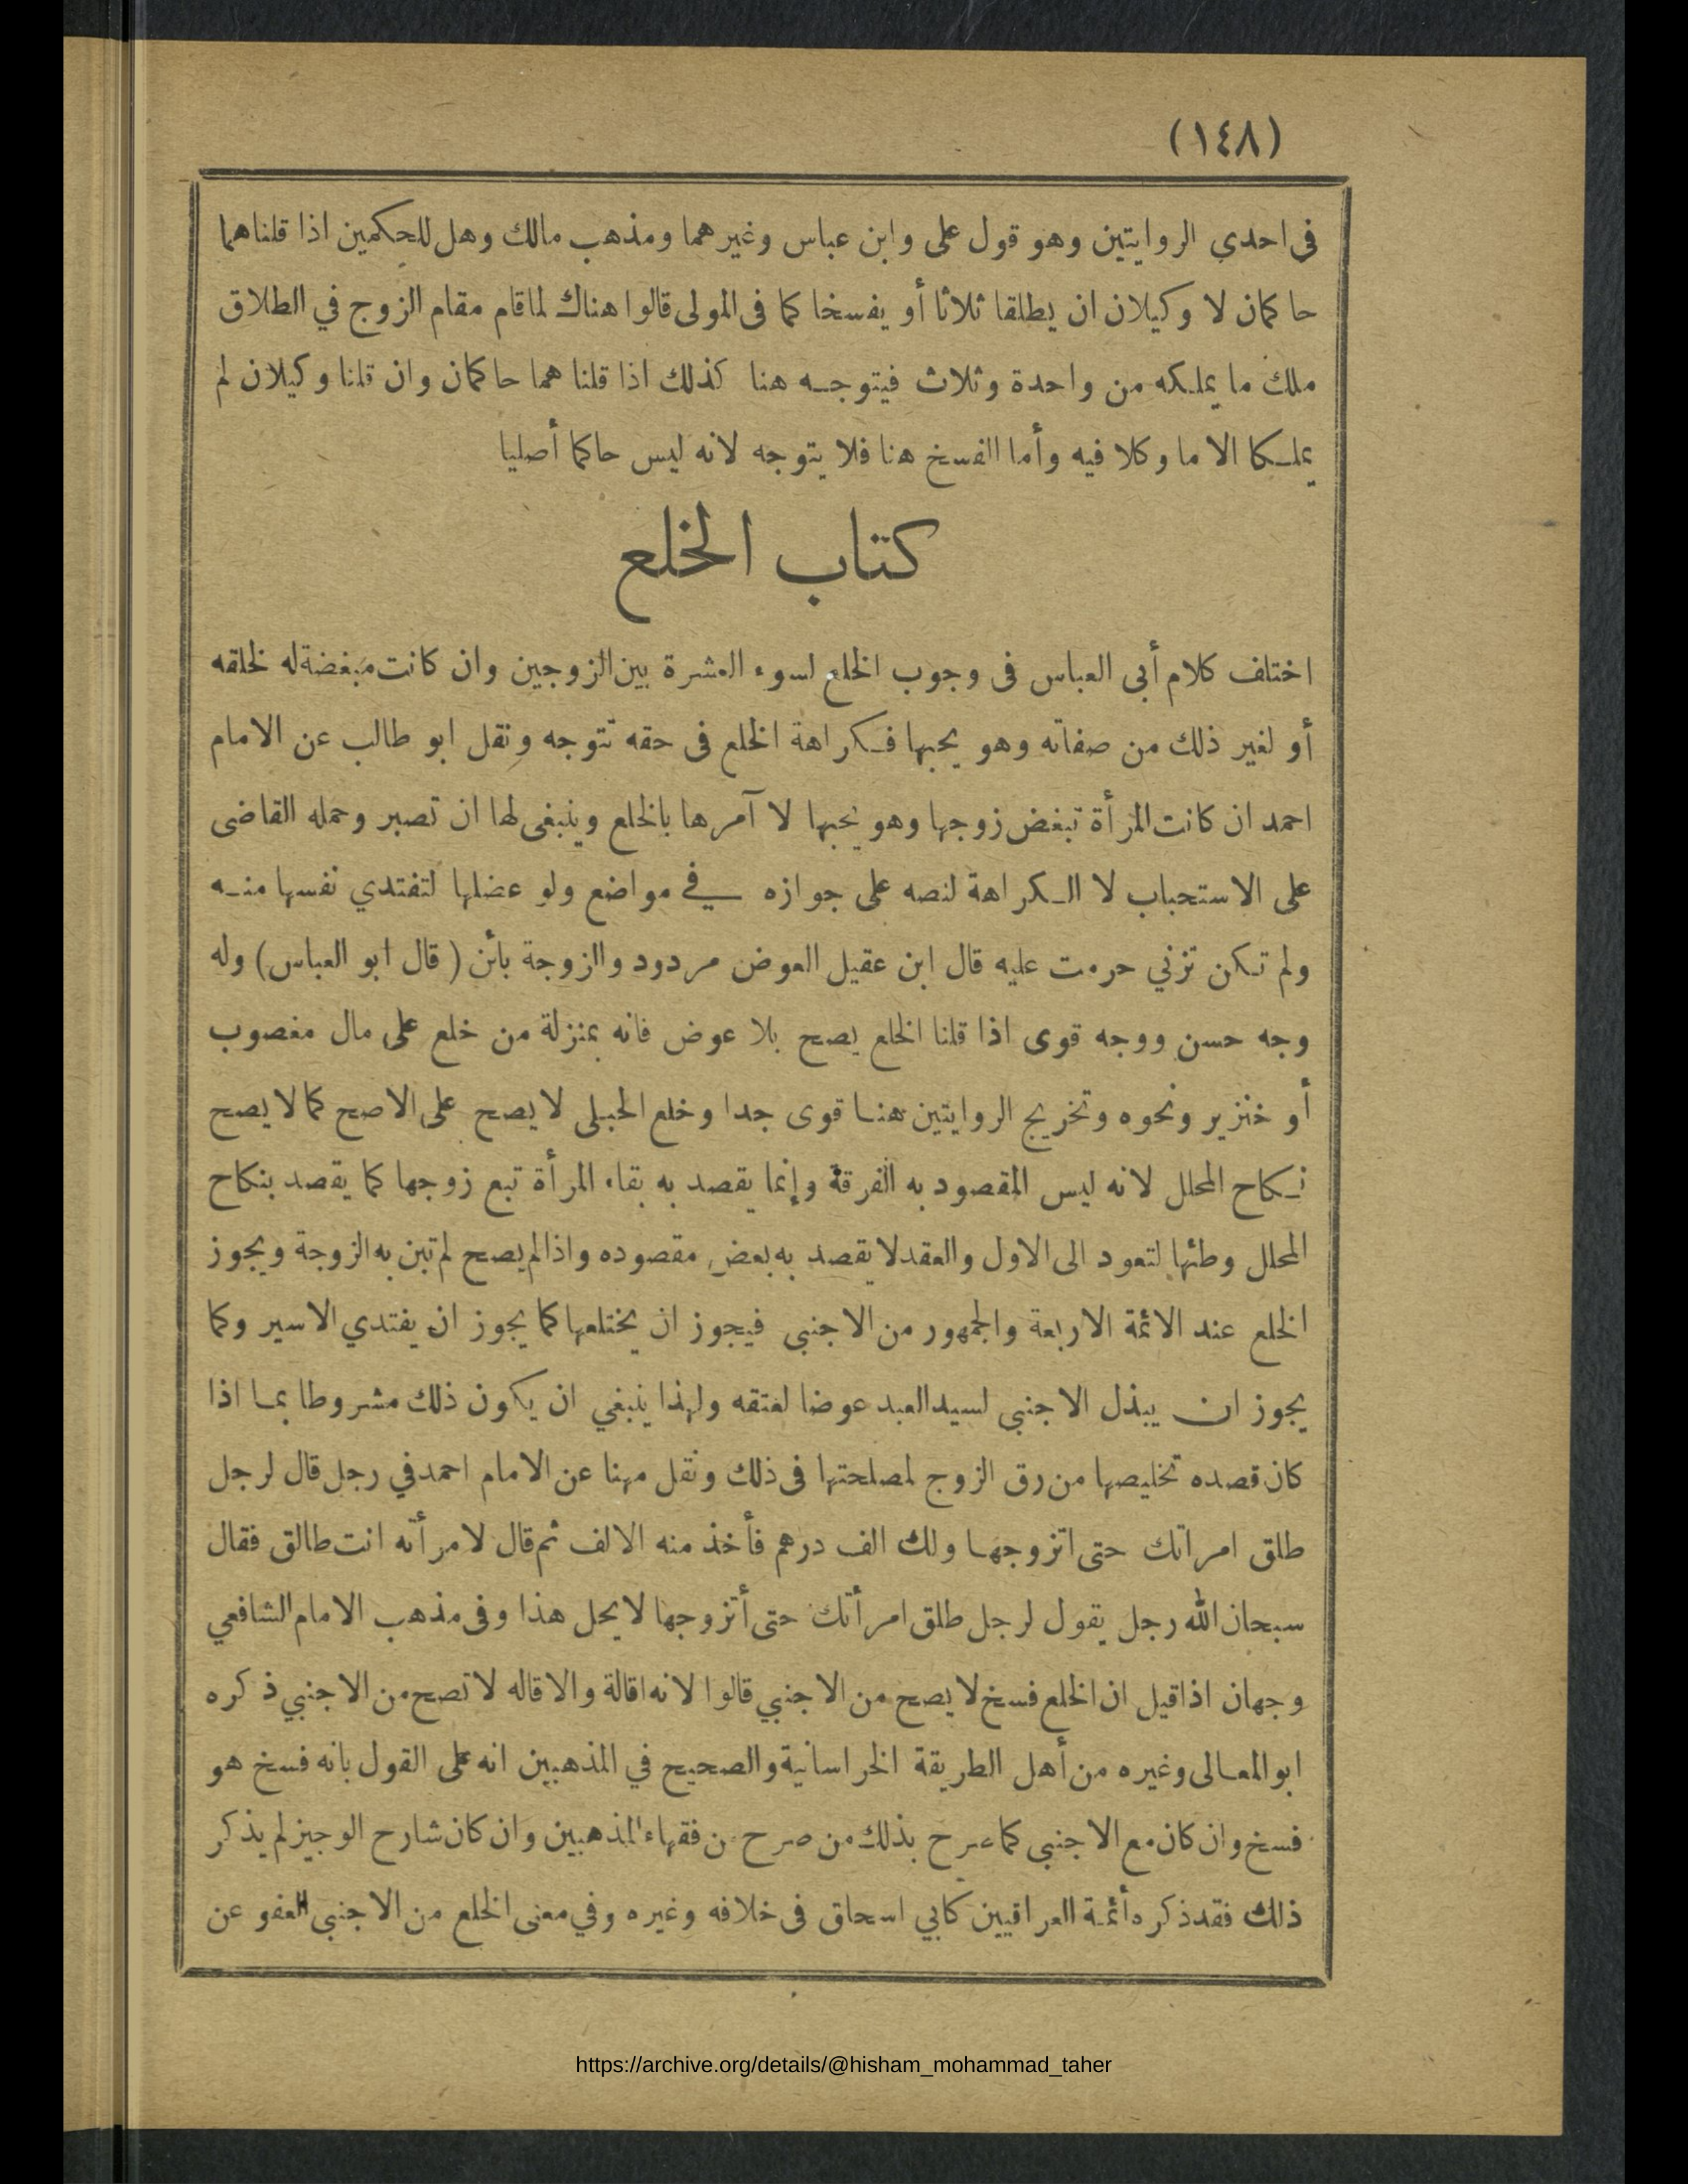 (١٤٨)
فى احدي الروايتين وهو قول على وابن عباس وغيرهما ومذهب مالك وهل للحكمين اذا قلناهما
حاكمان لا وكيلان ان يطلقا ثلاثا أو يفسخا كما فى المولى قالوا هناك لما قام مقام الزوج في الطلاق
ملك ما يملكه من واحدة وثلاث فيتوجه هنا كذلك اذا قلنا هما حاكمان وان قلنا وكيلان لم
يملكا الا ما وكلا فيه وأما الفسخ هنا فلا يتوجه لانه ليس حاكما أصليا
كتاب الخلع
اختلف كلام أبى العباس فى وجوب الخلع لسوء العشرة بين الزوجين وان كانت مبغضة له لخلقه
أو لغير ذلك من صفاته وهو يحبها فكراهة الخلع فى حقه تتوجه ونقل ابو طالب عن الامام
احمد ان كانت المرأة تبغض زوجها وهو يحبها لا آمرها بالخلع وينبغى لها ان تصبر وحمله القاضى
على الاستحباب لا الكراهة لنصه على جوازه في مواضع ولو عضلها لتفتدي نفسها منه
ولم تكن تزني حرمت عليه قال ابن عقيل العوض مردود والزوجة بائن (قال ابو العباس) وله
وجه حسن ووجه قوى اذا قلنا الخلع يصح بلا عوض فانه بمنزلة من خلع على مال مغصوب
أو خنزير ونحوه وتخريج الروايتين هنا قوى جدا وخلع الحبلى لا يصح على الاصح كما لا يصح
نكاح المحلل لانه ليس المقصود به الفرقة وإنما يقصد به بقاء المرأة تبع زوجها كما يقصد بنكاح
المحلل وطئها لتعود الى الاول والعقد لا يقصد به بعض مقصوده واذا لم يصح لم تبن به الزوجة ويجوز
الخلع عند الائمة الاربعة والجمهور من الاجنبى فيجوز ان يختلعها كما يجوز ان يفتدي الاسير وكما
يجوز ان يبذل الاجنبى لسيد العبد عوضا لعتقه ولهذا ينبغي ان يكون ذلك مشروطا بما اذا
كان قصده تخليصها من رق الزوج لمصلحتها فى ذلك ونقل مهنا عن الامام احمد في رجل قال لرجل
طلق امراتك حتى اتزوجها ولك الف درهم فأخذ منه الالف ثم قال لامرأته انت طالق فقال
سبحان الله رجل يقول لرجل طلق امرأتك حتى أتزوجها لا يحل هذا وفى مذهب الامام الشافعي
وجهان اذا قيل ان الخلع فسخ لا يصح من الاجنبي قالوا لانه اقالة والاقاله لا تصح من الاجنبي ذكره
ابو المعالى وغيره من أهل الطريقة الخراسانية والصحيح في المذهبين انه على القول بانه فسخ هو
فسخ وان كان مع الاجنبى كما صرح بذلك من صرح من فقهاء المذهبين وان كان شارح الوجيز لم يذكر
ذلك فقد ذكره أئمة العراقيين كابي اسحاق فى خلافه وغيره وفي معنى الخلع من الاجنبى العفو عن
https://archive.org/details/@hisham_mohammad_taher